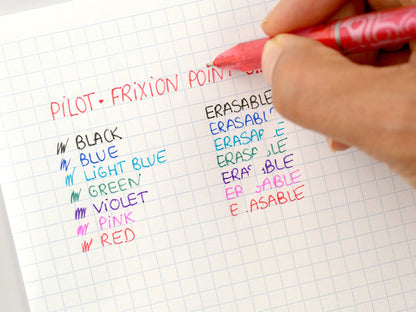 PILOT · FRIXION POINT
BLACK
BLUE
LIGHT BLUE
GREEN
VIOLET
PINK
RED
ERASABLE
ERASABLE
ERASABLE
ERASABLE
ERASABLE
ERASABLE
ERASABLE